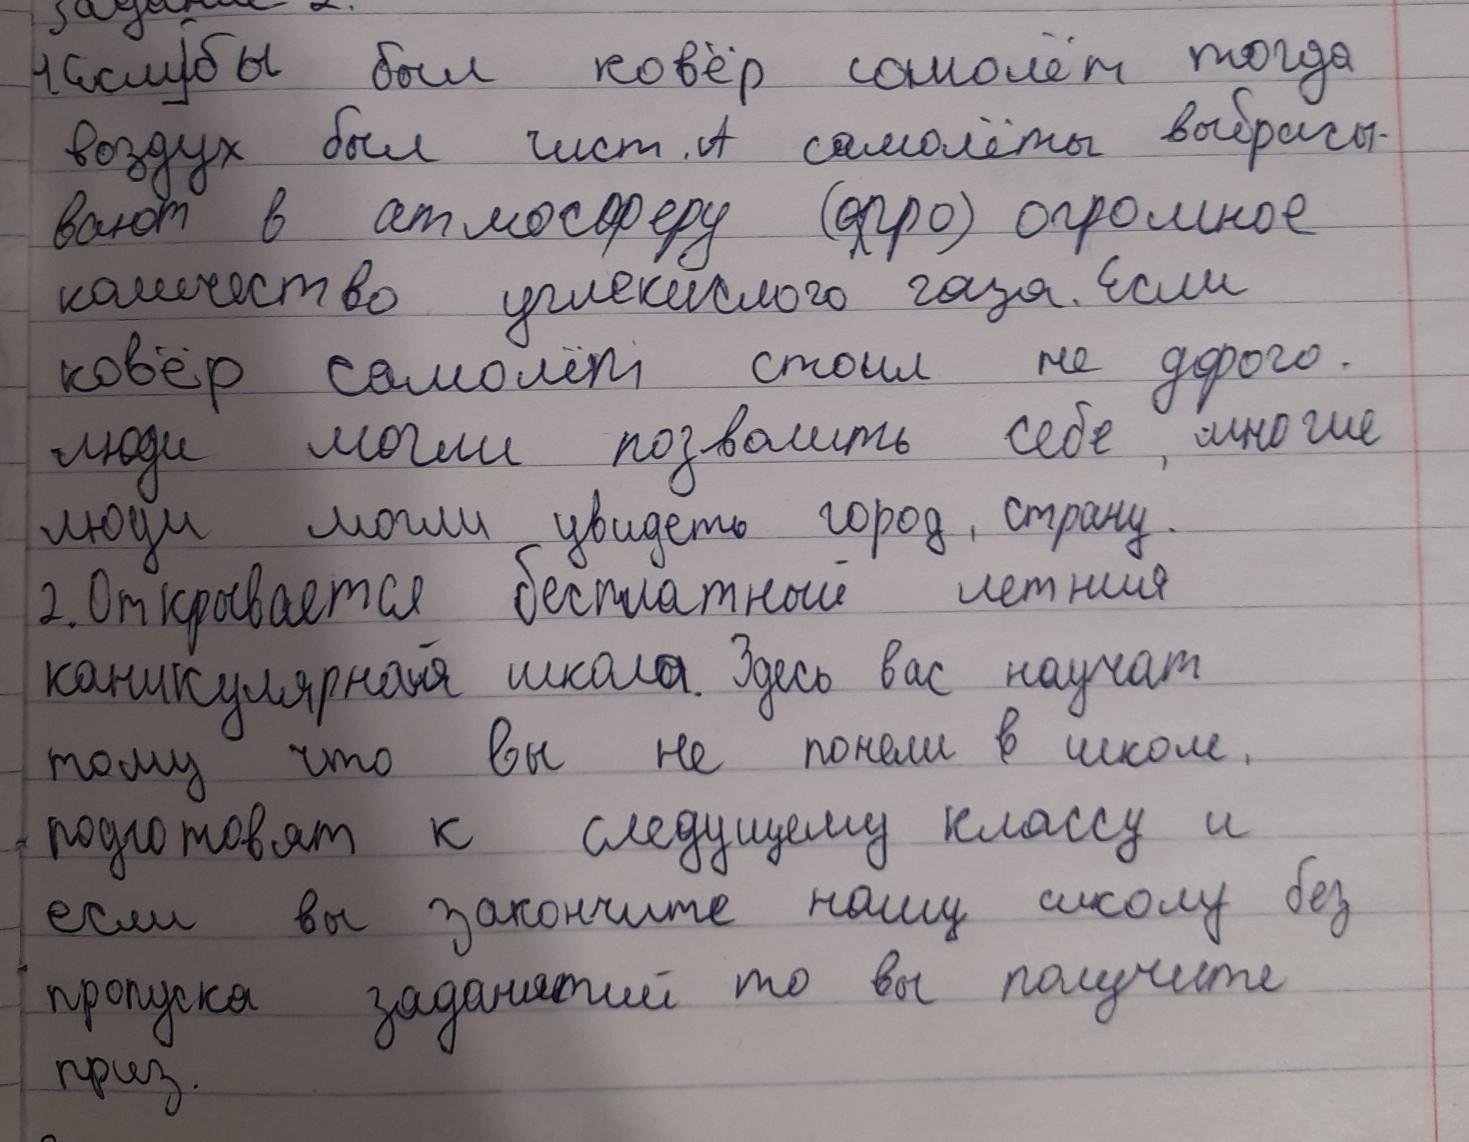 задание 2.
1. Еслибы был ковёр самолёт тогда
воздух был чист. А самолёты выбрасы-
вают в атмосферу (огро) огромное
количество углекислого газа. Если
ковёр самолёт стоил не дорого.
люди могли позволить себе, многие
люди могли увидеть город, страну.
2. Открывается бесплатный летния
каникулярная школа. Здесь вас научат
тому что вы не понели в школе,
подготовят к следущему классу и
если вы закончите нашу школу без
пропуска заданятий то вы получите
приз.